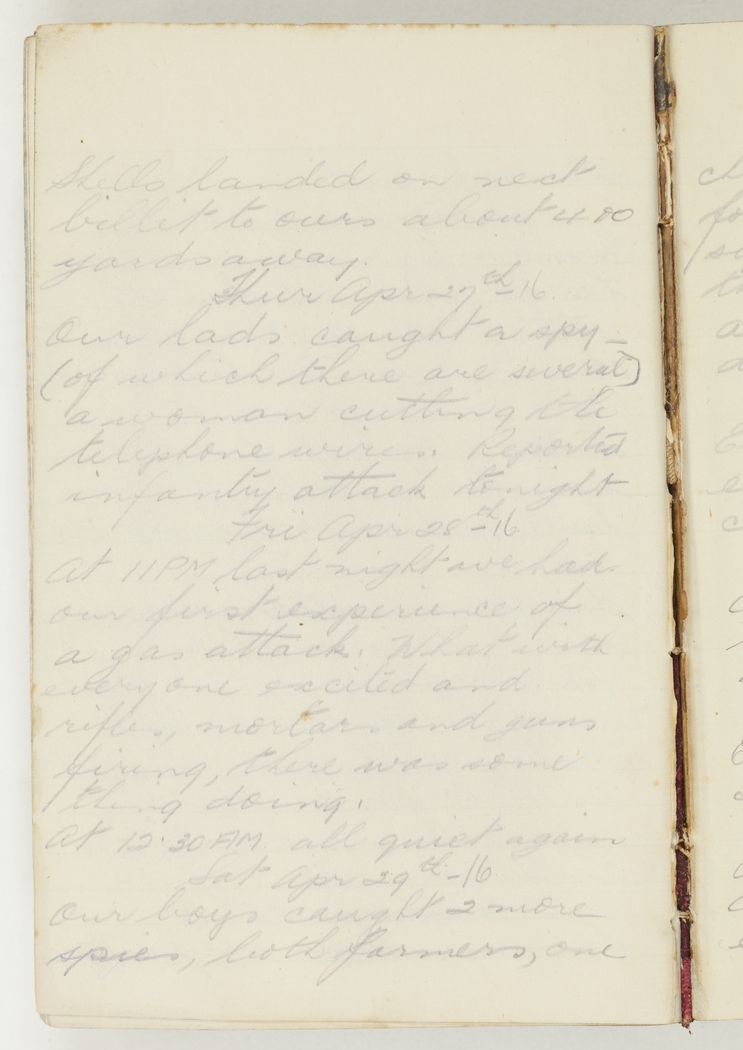 Shells landed on next
billit to ours about 400
yards away.
Thur Apr 27th-16.
Our lads caught a spy -
(of which there are several)
a woman cutting the
telephone wires. Reported
infantry attack tonight
Fri Apr 28th-16
At 11PM last night we had
our first experience of
a gas attack. What with
everyone excited and
rifles, mortars and guns
firing, there was some
thing doing.
At 12.30AM all quiet again
Sat Apr 29th-16
Our boys caught 2 more
spies, both farmers, one